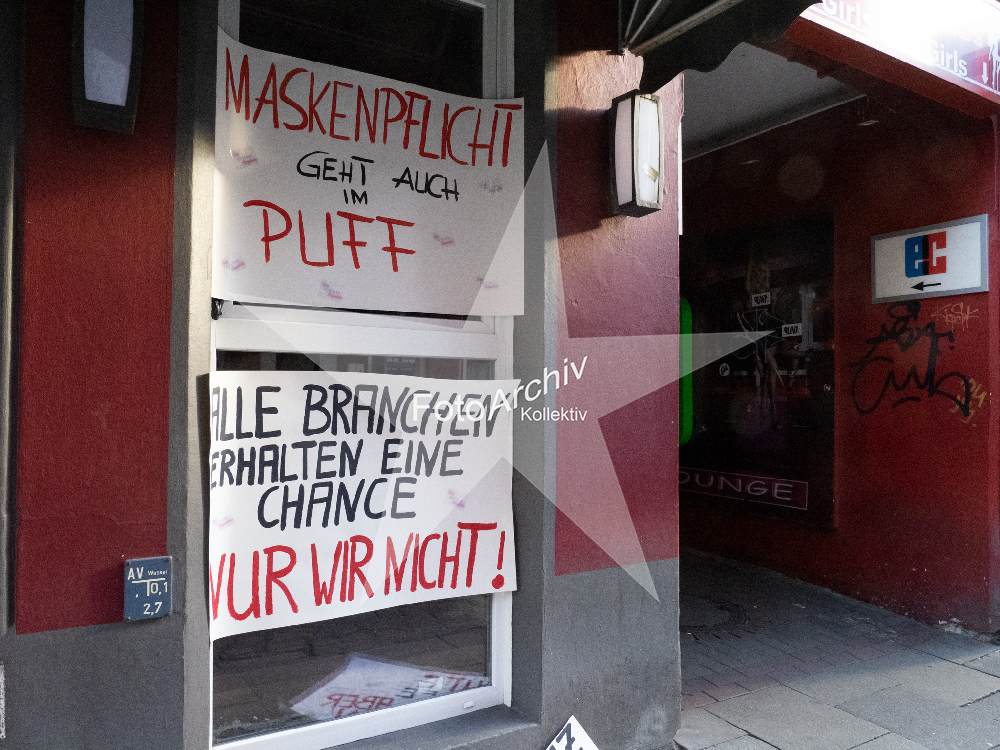 MASKENPFLICHT
GEHT AUCH
IM
PUFF
ALLE BRANCHEN
ERHALTEN EINE
CHANCE
NUR WIR NICHT!
Foto Archiv
Kollektiv
AV Wasser
0,1
2,7
Girls
Girls
ec
LOUNGE
ABER